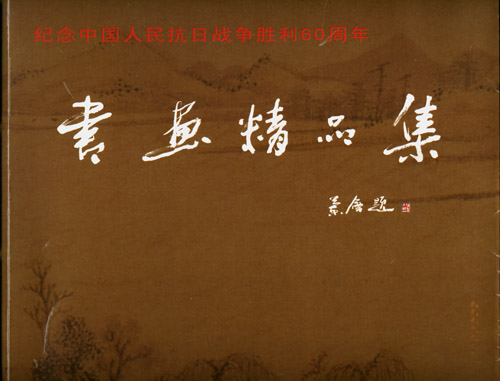 纪念中国人民抗日战争胜利60周年
書画精品集
题